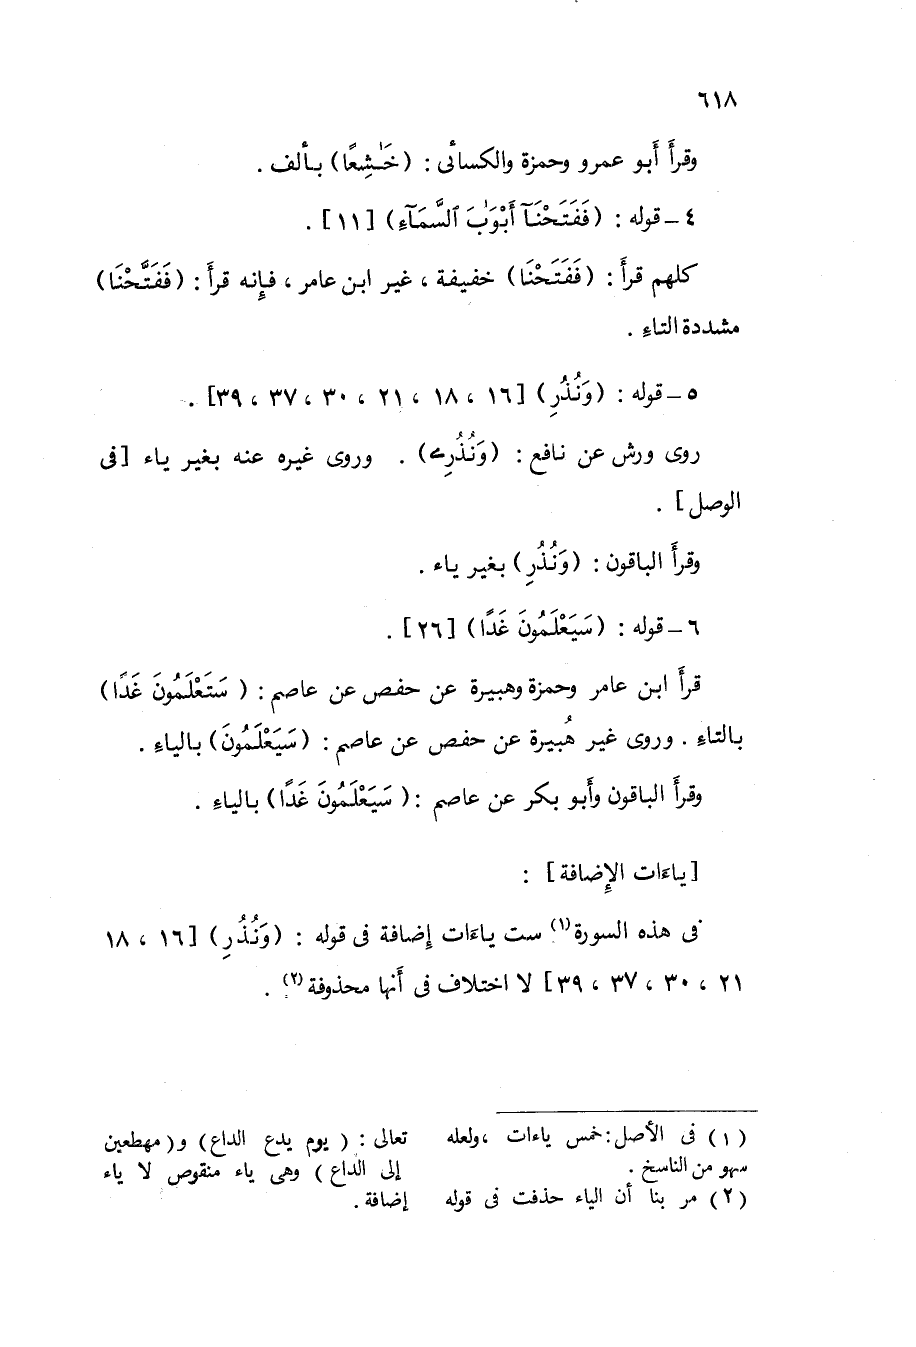 ٦١٨
وقرأ أبو عمرو وحمزة والكسائى : (خَـٰشِعًا) بـألف .
٤ ــ قوله : (فَفَتَحْنَآ أَبْوَٰبَ ٱلسَّمَآءِ) [١١] .
كلهم قرأ : (فَفَتَحْنَا) خفيفة ، غير ابن عامر ، فإنه قرأ : (فَفَتَّحْنَا)
مشددة التاءِ .
٥ ــ قوله : (وَنُذُرِ) [١٦ ، ١٨ ، ٢١ ، ٣٠ ، ٣٧ ، ٣٩] .
روى ورش عن نافع : (وَنُذُرِے) . وروى غيره عنه بغير ياء [فى
الوصل] .
وقرأَ الباقون : (وَنُذُرِ) بغير ياء .
٦ ــ قوله : (سَيَعْلَمُونَ غَدًا) [٢٦] .
قرأَ ابن عامر وحمزة وهبيرة عن حفص عن عاصم : (سَتَعْلَمُونَ غَدًا)
بالتاءِ . وروى غير هُبيرة عن حفص عن عاصم : (سَيَعْلَمُونَ) بالياءِ .
وقرأَ الباقون وأَبو بكر عن عاصم : (سَيَعْلَمُونَ غَدًا) بالياءِ .
[ياءَات الإِضافة] :
فى هذه السورة(١) ست ياءَات إِضافة فى قوله : (وَنُذُرِ) [١٦ ، ١٨
٢١ ، ٣٠ ، ٣٧ ، ٣٩] لا اختلاف فى أَنها محذوفة(٢) .
(١) فى الأصل : خمس ياءات ، ولعله
سهو من الناسخ .
(٢) مر بنا أن الياء حذفت فى قوله
تعالى : ( يوم يدع الداع ) و( مهطعين
إلى الداع ) وهى ياء منقوص لا ياء
إضافة .